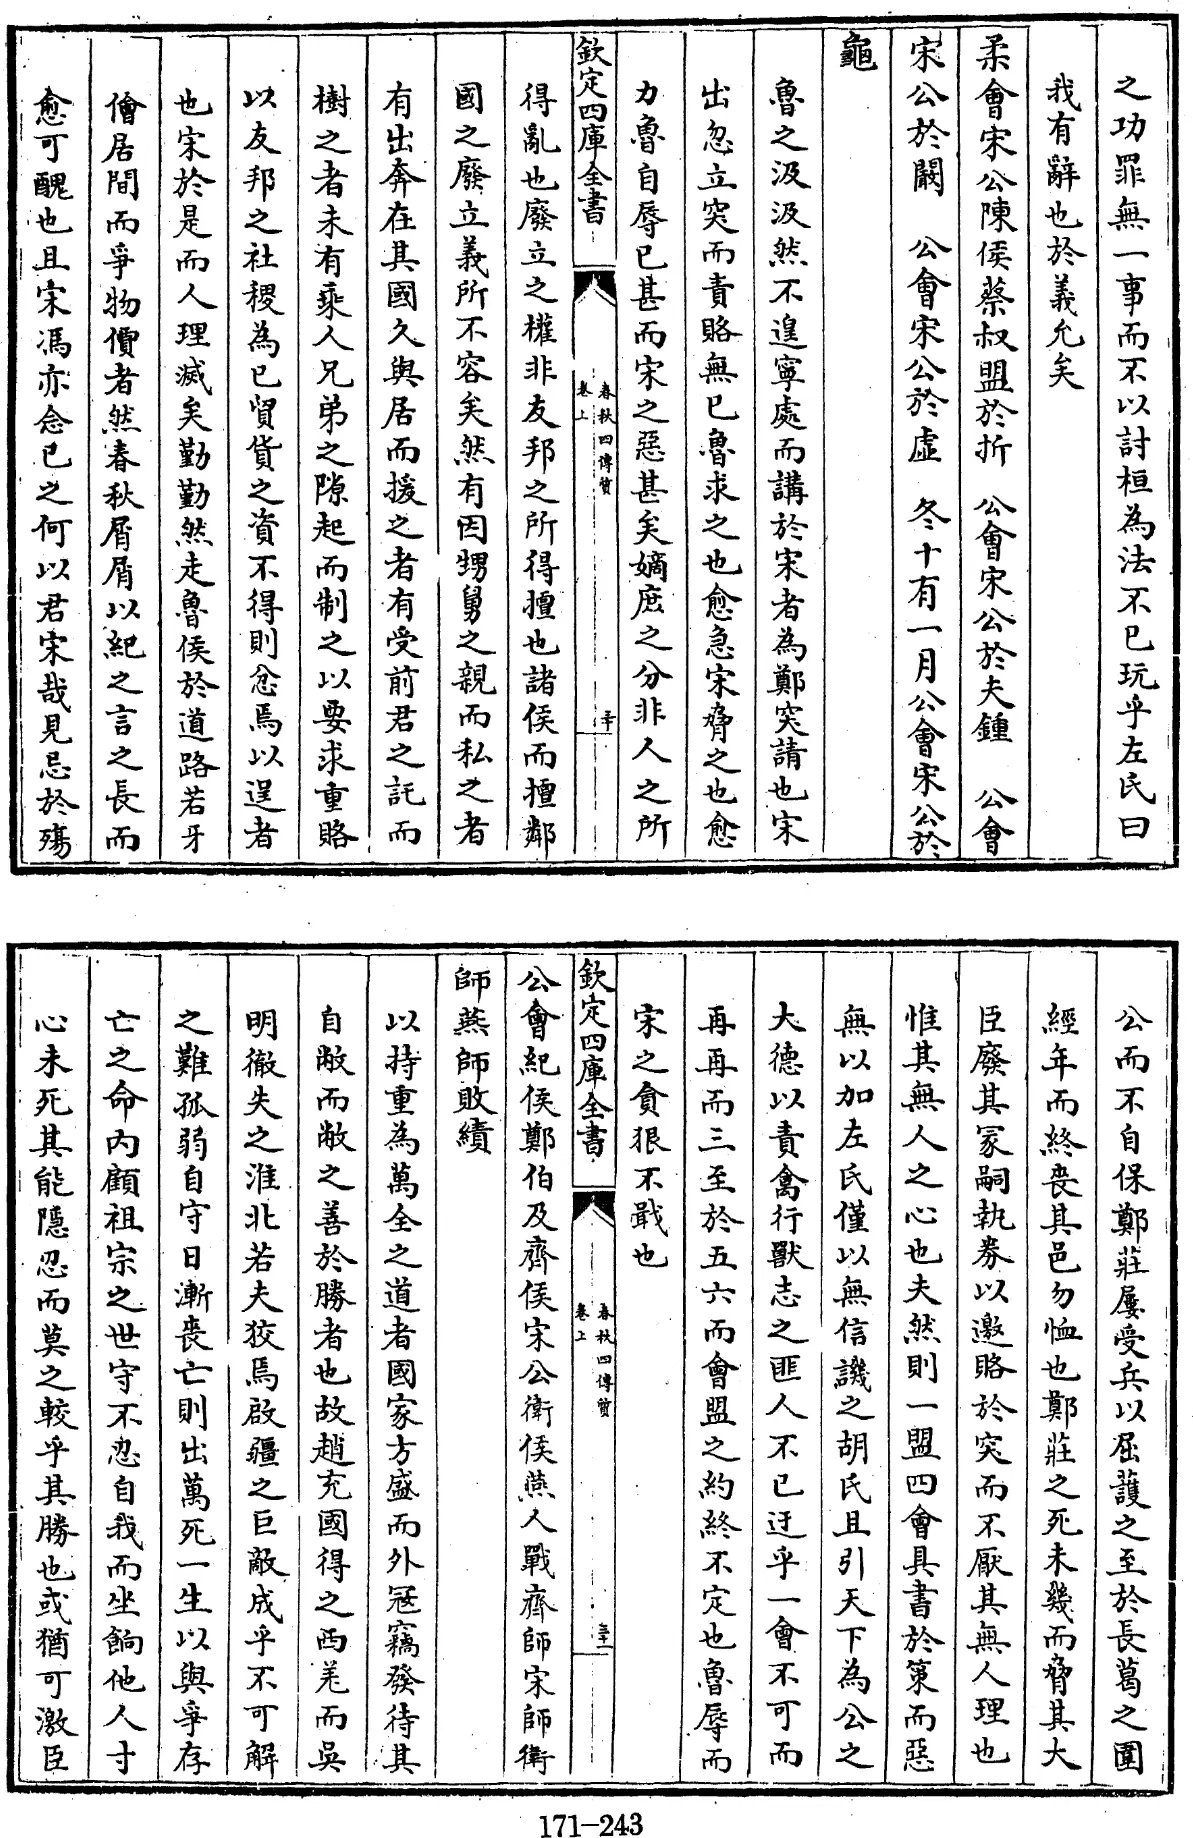 之功罪無一事而不以討桓為法不已玩乎左氏曰
我有辭也於義允矣
柔會宋公陳侯蔡叔盟於折　公會宋公於夫鍾　公會
宋公於闞　公會宋公於虛　冬十有一月公會宋公於
龜
魯之汲汲然不遑寧處而講於宋者為鄭突請也宋
出忽立突而責賂無已魯求之也愈急宋脅之也愈
力魯自辱已甚而宋之惡甚矣嫡庶之分非人之所
欽定四庫全書
春秋四傳質
卷上
三十
得亂也廢立之權非友邦之所得擅也諸侯而擅鄰
國之廢立義所不容矣然有因甥舅之親而私之者
有出奔在其國久與居而援之者有受前君之託而
樹之者未有乘人兄弟之隙起而制之以要求重賂
以友邦之社稷為已貿貨之資不得則忿焉以逞者
也宋於是而人理滅矣勤勤然走魯侯於道路若牙
儈居間而爭物價者然春秋屑屑以紀之言之長而
愈可醜也且宋馮亦念已之何以君宋哉見忌於殤
公而不自保鄭莊屢受兵以屈護之至於長葛之圍
經年而終喪其邑勿恤也鄭莊之死未幾而脅其大
臣廢其冢嗣執券以邀賂於突而不厭其無人理也
惟其無人之心也夫然則一盟四會具書於策而惡
無以加左氏僅以無信譏之胡氏且引天下為公之
大德以責禽行獸志之匪人不已迂乎一會不可而
再再而三至於五六而會盟之約終不定也魯辱而
宋之貪狠不戢也
欽定四庫全書
春秋四傳質
卷上
三十一
公會紀侯鄭伯及齊侯宋公衛侯燕人戰齊師宋師衛
師燕師敗績
以持重為萬全之道者國家方盛而外寇竊發待其
自敝而敝之善於勝者也故趙充國得之西羌而吳
明徹失之淮北若夫狡焉啟疆之巨敵成乎不可解
之難孤弱自守日漸喪亡則出萬死一生以與爭存
亡之命內顧祖宗之世守不忍自我而坐餉他人寸
心未死其能隱忍而莫之較乎其勝也或猶可激臣
171-243